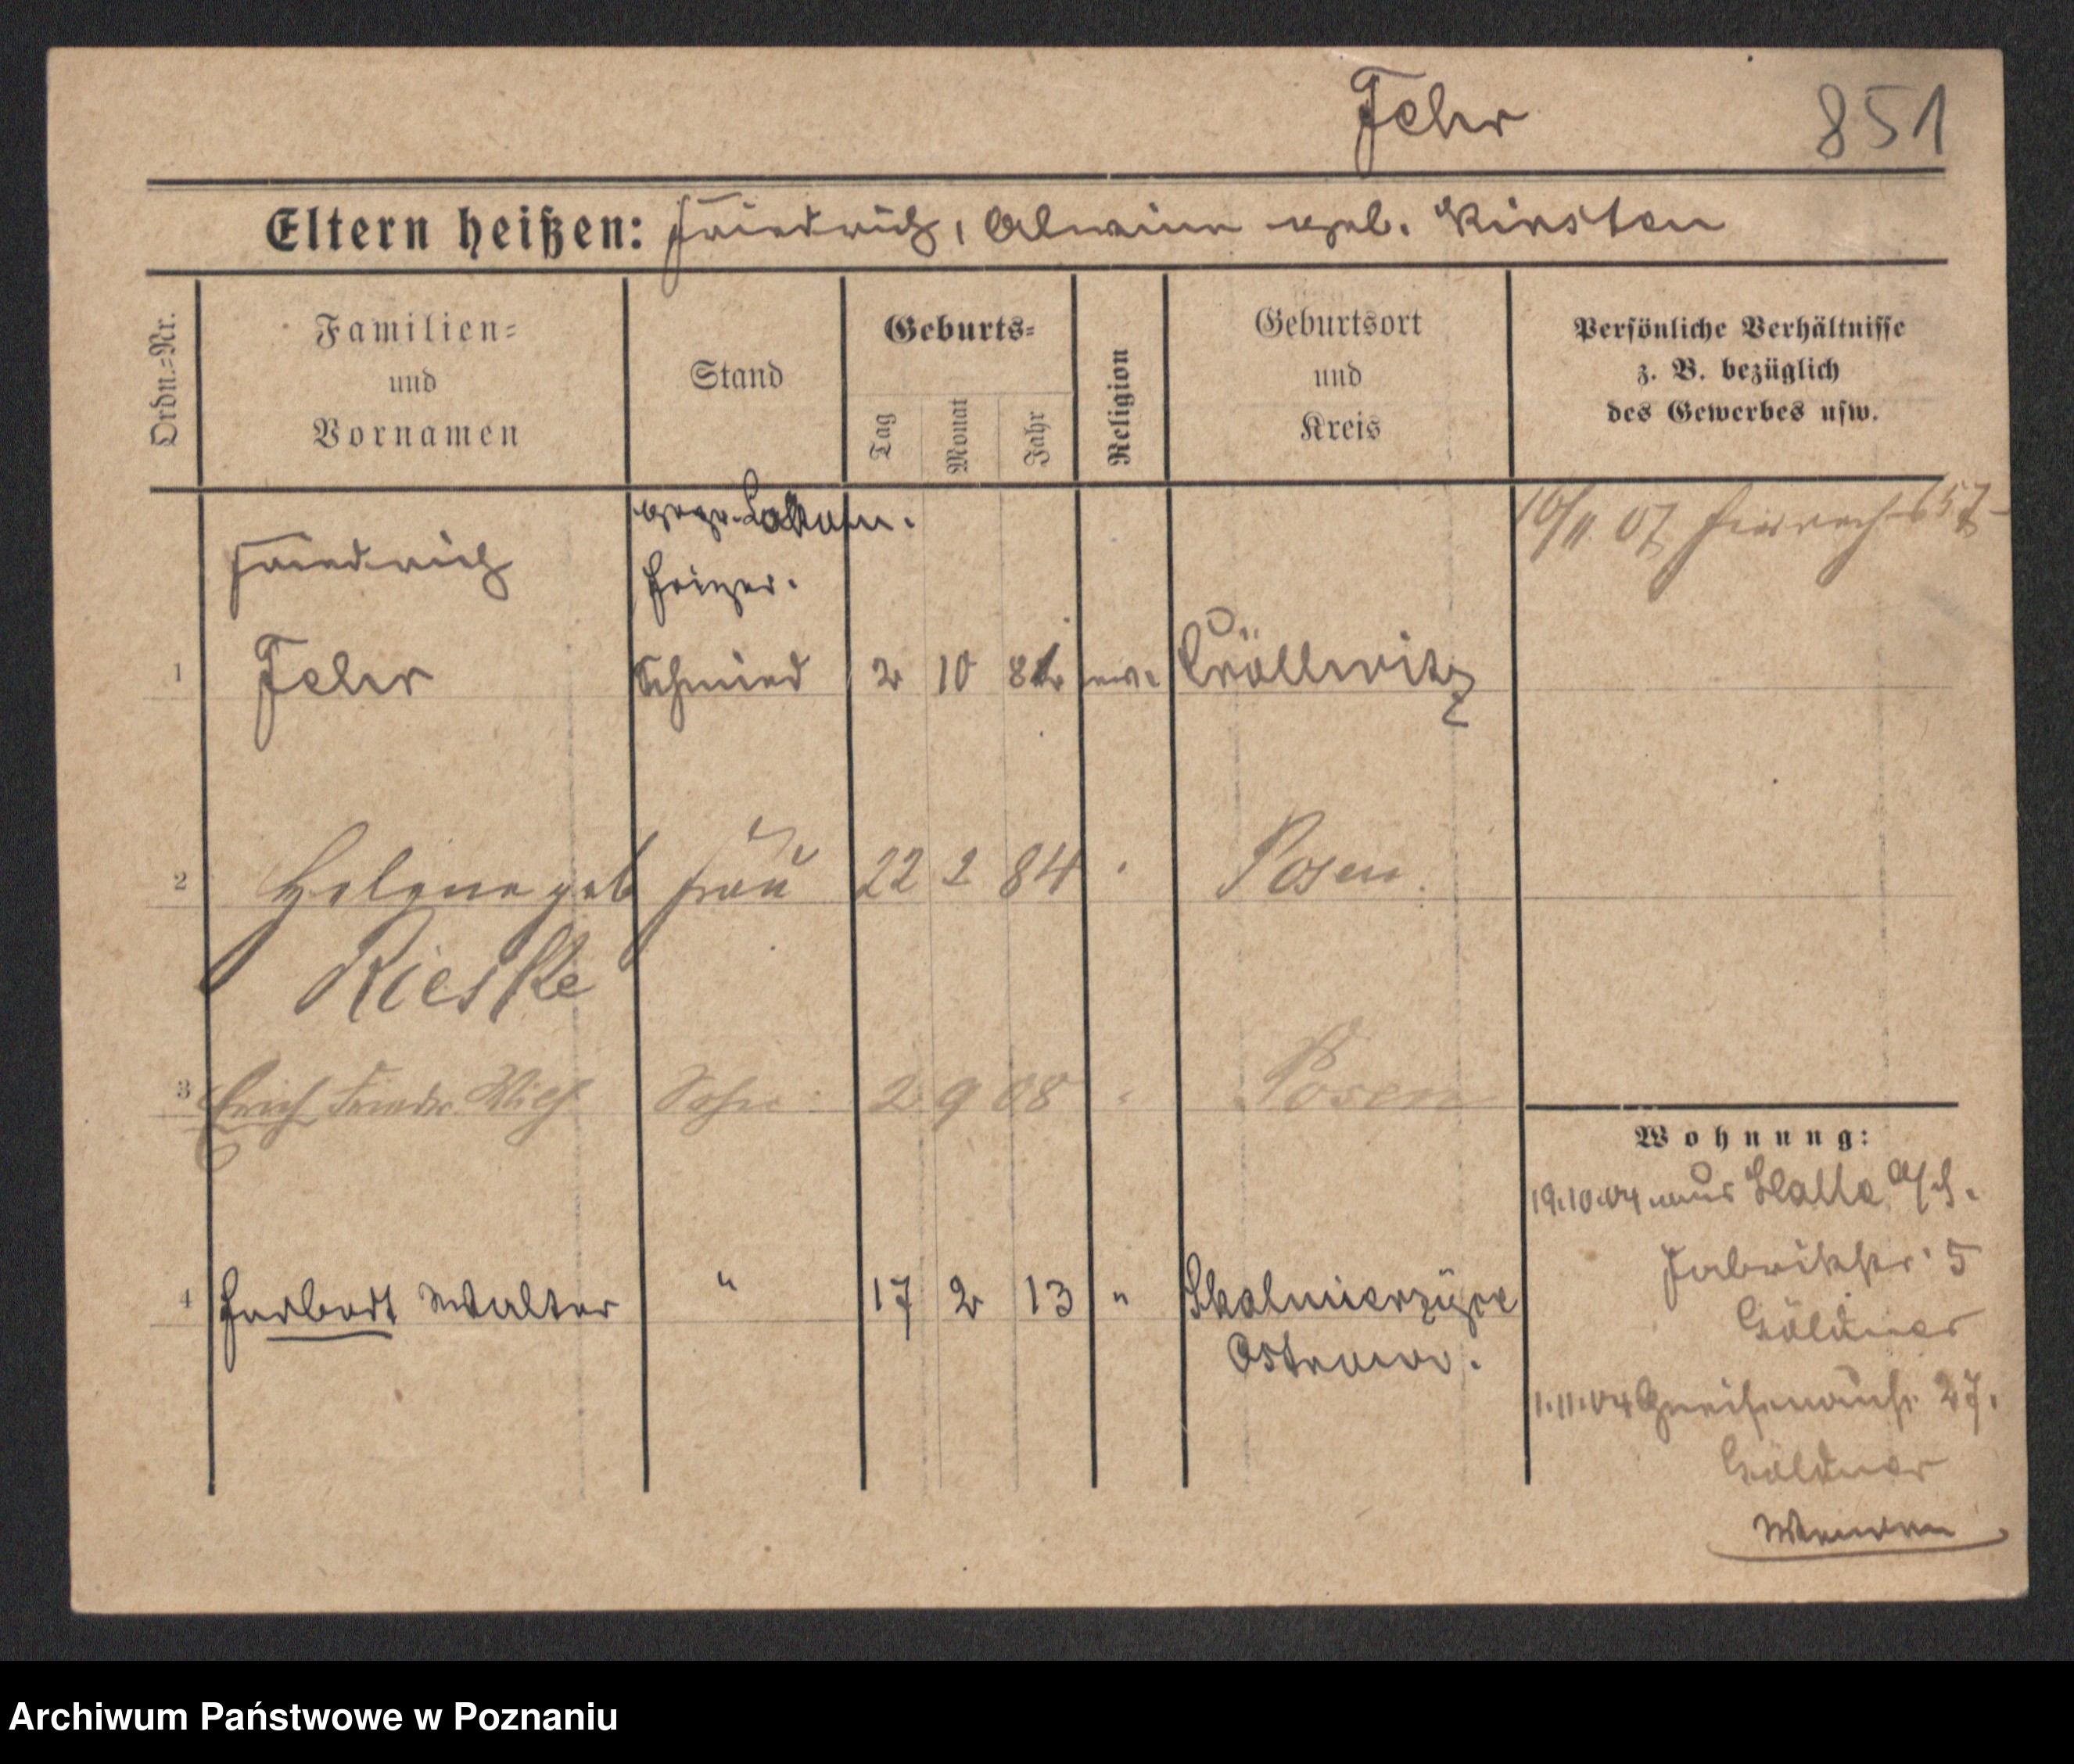 Fehr 851
Eltern heißen: Friedrich, Alwine geb. Kirsten
Ordn.=Nr.
Familien=
und
Vornamen
Stand
Geburts=
Tag
Monat
Jahr
Religion
Geburtsort
und
Kreis
Persönliche Verhältnisse
z. B. bezüglich
des Gewerbes usw.
Friedrich
Heizer.
1 Fehr Schmied 2 10 ev. Cröllwitz
16/11 07
2 Helene geb Frau 22 2 84 Posen.
Rieske
3 Erich Friedr. Wilh Sohn 2 9 08 " Posen
Wohnung:
19.10.04 aus Halle a/S.
Fabrikstr. 5
Göldner
4 Herbert Walter " 17 2 13 " Skalmierzyce
Ostrowo.
1.11.04 Gneisenaustr. 27.
Göldner
Archiwum Państwowe w Poznaniu